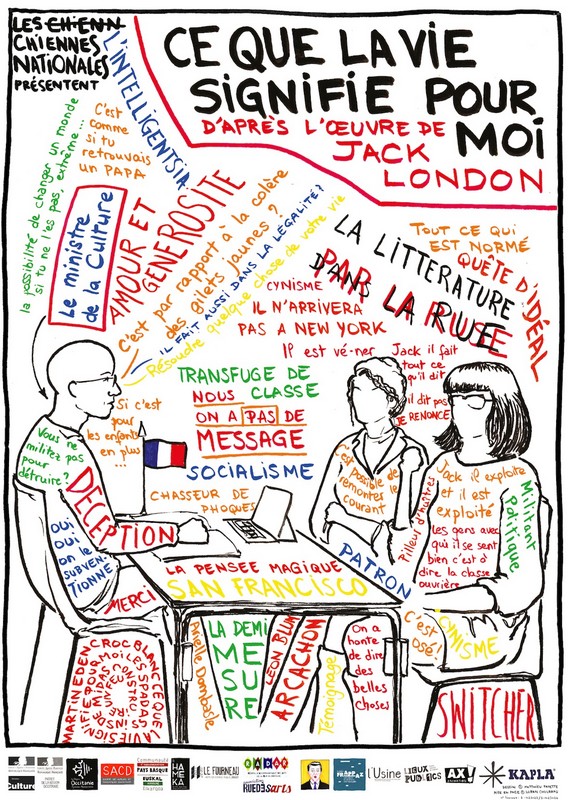 LES CHIENN
CHIENNES
NATIONALES
PRÉSENTENT
CE QUE LA VIE
SIGNIFIE POUR
MOI
D'APRÈS L'ŒUVRE DE
JACK
LONDON
L'INTELLIGENTSIA
la possibilité de changer un monde
si tu ne l'es pas, extrême...
C'est
comme
si tu
retrouvais
un PAPA
Le ministre
de la Culture
AMOUR ET
GENEROSITE
C'est par rapport à la colère
des gilets jaunes ?
IL FAIT AUSSI DANS LA LÉGALITÉ ?
Résoudre quelque chose de votre vie
LA LITTERATURE
PAR LA RUE
DANS LA RUE
TOUT CE QUI
EST NORMÉ
QUÊTE D'IDÉAL
CYNISME
IL N'ARRIVERA
PAS A NEW YORK
Il est vé-ner
Jack il fait
tout ce
qu'il dit
il dit pas
JE RENONCE
TRANSFUGE DE
CLASSE
NOUS
ON A PAS DE
MESSAGE
SOCIALISME
CHASSEUR DE
PHOQUES
Si c'est
pour
les enfants
en plus
...
Vous ne
militez pas
pour
détruire ?
DECEPTION
OUI
OUI
on le
SUBVEN
TIONNE
MERCI
C'est
possible de
remonter le
courant
Pilleur d'huîtres
Jack il exploite
et il est
exploité
les gens avec
qui il se sent
bien c'est à
dire la classe
ouvrière
Militant
Politique
LA PENSEE MAGIQUE
SAN FRANCISCO
PATRON
C'est
osé !
CYNISME
Arielle Dombasle
LA DEMI
ME
SU
RE
LEON BLUM
ARCACHON
Témoignage
On a
honte
de dire
des
belles
choses
MARTIN EDEN
CROC BLANC
SWITCHER
Culture
Occitanie
SACD
Communauté
PAYS BASQUE
EUSKAL
HA
MEKA
LE FOURNEAU
RUEDESARTS
L'Usine
AX
KAPLA